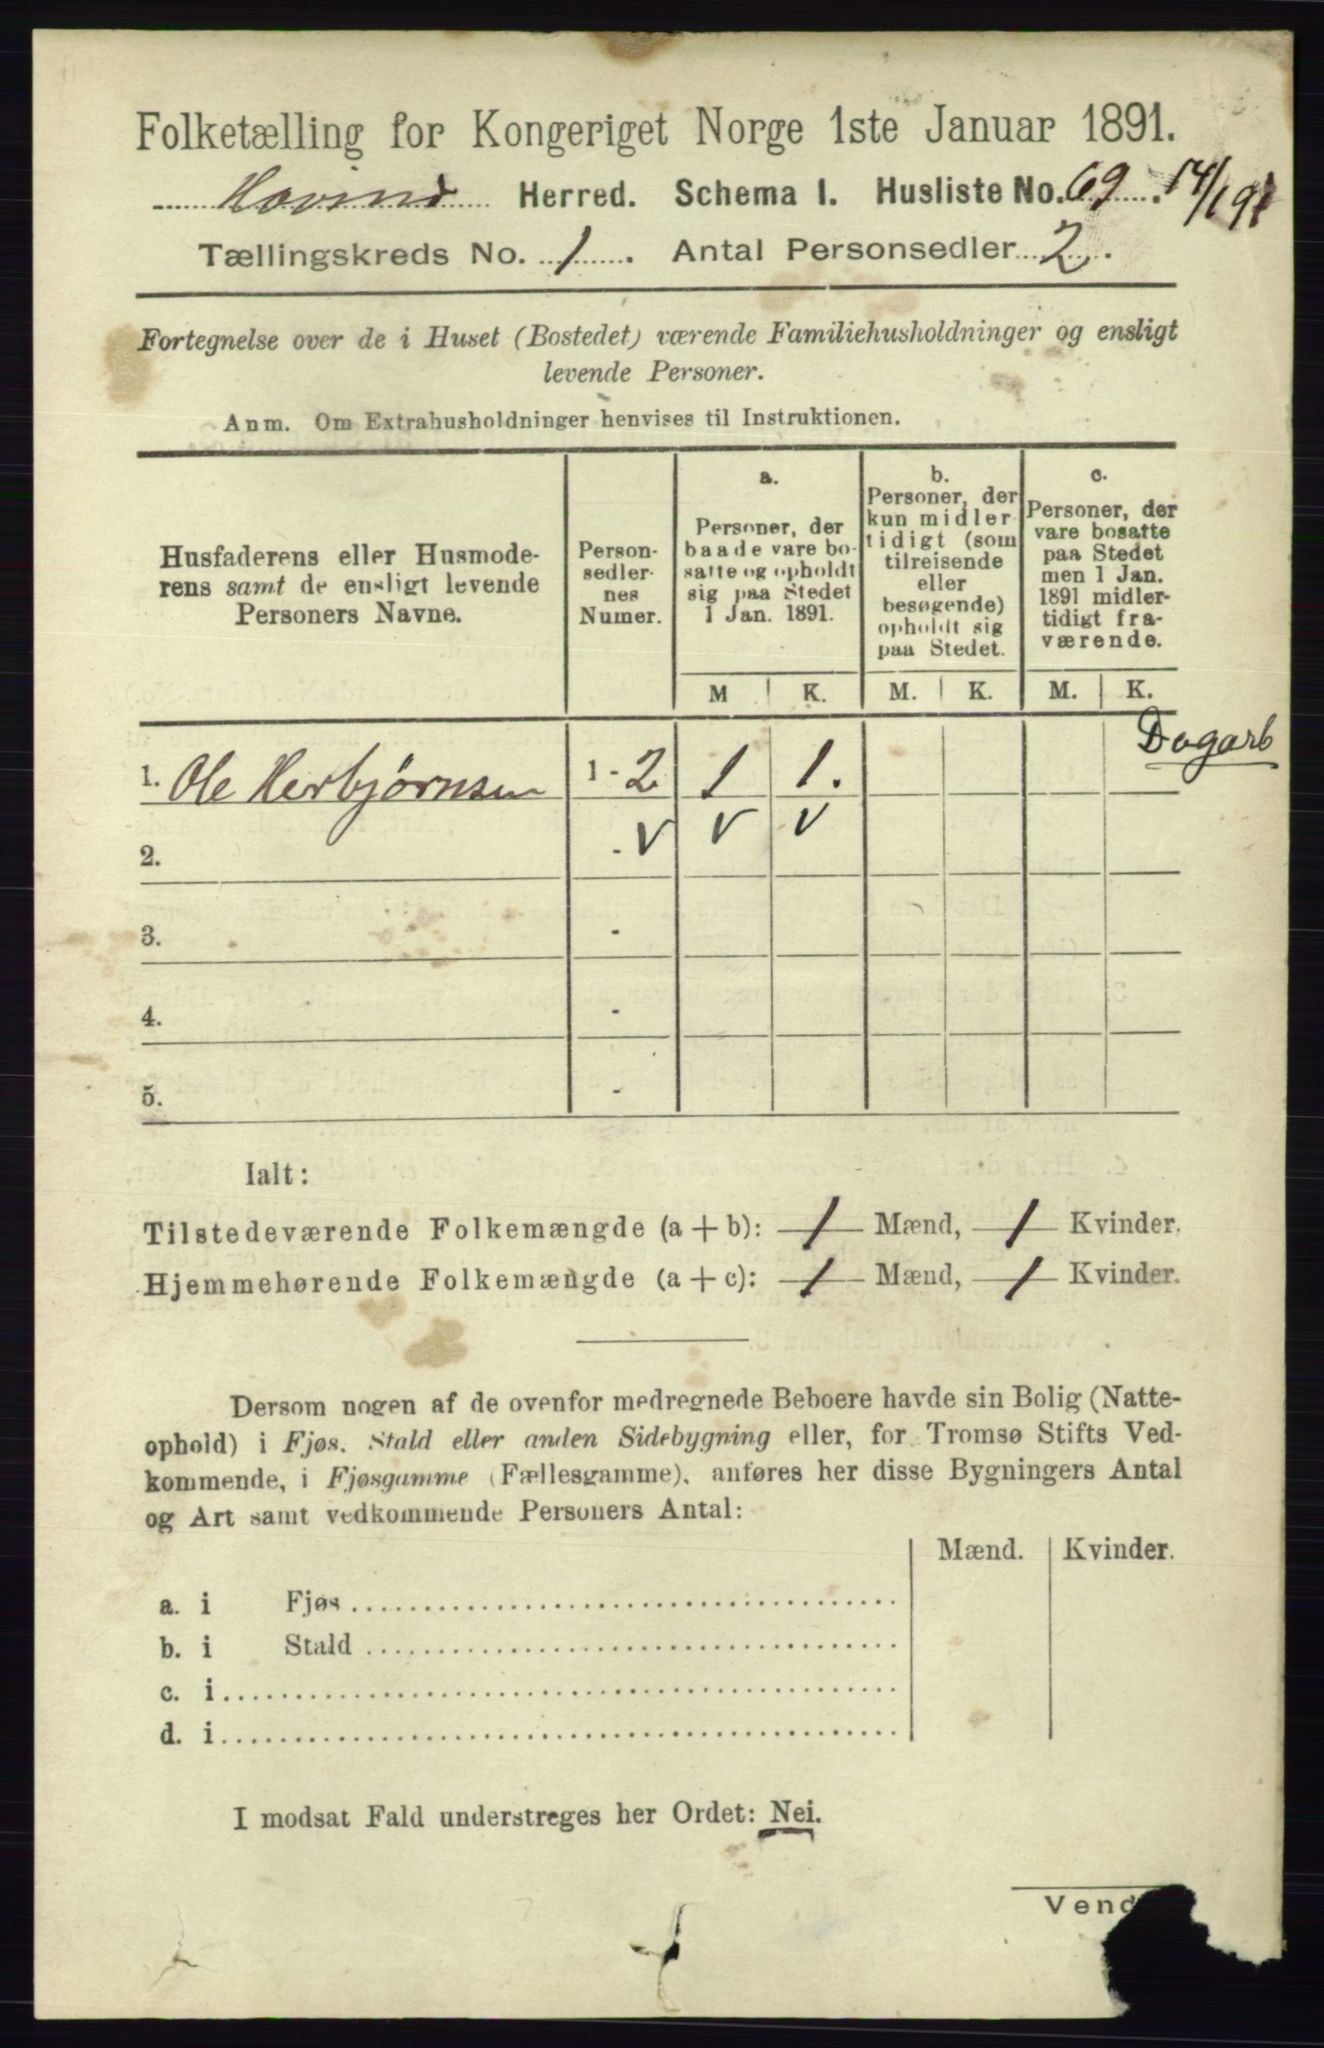 Folketælling for Kongeriget Norge 1ste Januar 1891.
Hovind Herred. Schema I. Husliste No. 69. 14/1 91
Tællingskreds No. 1. Antal Personsedler 2.
Fortegnelse over de i Huset (Bostedet) værende Familiehusholdninger og ensligt
levende Personer.
Anm. Om Extrahusholdninger henvises til Instruktionen.
Husfaderens eller Husmode-
rens samt de ensligt levende
Personers Navne.
Person-
sedler-
nes
Numer.
a.
Personer, der
baade vare bo-
satte og opholdt
sig paa Stedet
1 Jan. 1891.
b.
Personer, der
kun midler-
tidigt (som
tilreisende
eller
besøgende)
opholdt sig
paa Stedet.
c.
Personer, der
vare bosatte
paa Stedet
men 1 Jan.
1891 midler-
tidigt fra-
værende.
M K. M. K. M. K.
Dagarb
1. Ole Herbjørnsen 1 - 2 1 1.
2. - V V V
3. -
4. -
5. -
Ialt:
Tilstedeværende Folkemængde (a + b): 1 Mænd, 1 Kvinder.
Hjemmehørende Folkemængde (a + c): 1 Mænd, 1 Kvinder.
Dersom nogen af de ovenfor medregnede Beboere havde sin Bolig (Natte-
ophold) i Fjøs, Stald eller anden Sidebygning eller, for Tromsø Stifts Ved-
kommende, i Fjøsgamme (Fællesgamme), anføres her disse Bygningers Antal
og Art samt vedkommende Personers Antal:
Mænd. Kvinder.
a. i Fjøs
b. i Stald
c. i
d. i
I modsat Fald understreges her Ordet: Nei.
Vend